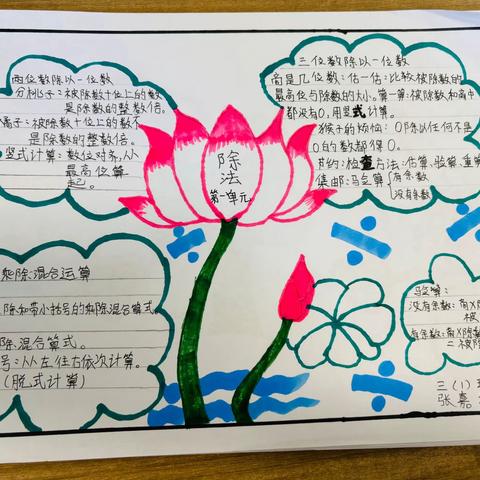 两位数除以一位数
分桃子：被除数十位上的数
是除数的整数倍。
橘子：被除数十位上的数不
是除数的整数倍。
竖式计算：数位对齐，从
最高位算
起。
三位数除以一位数
商是几位数：估一估：比较被除数的
最高位与除数的大小。算一算：被除数和商中
都没有0，用竖式计算。
猴子的烦恼：0除以任何不是
0的数都得0。
节约：检查方法：估算、验算、重算
集邮：验算{有余数
没有余数
除
法
第一单元
乘除混合运算
除和带小括号的乘除混合算式。
除混合算式。
号：从左往右依次计算。
(脱式计算)
验算：
没有余数：商×除
被
有余数：商×除数
=被除
三(1)
张嘉